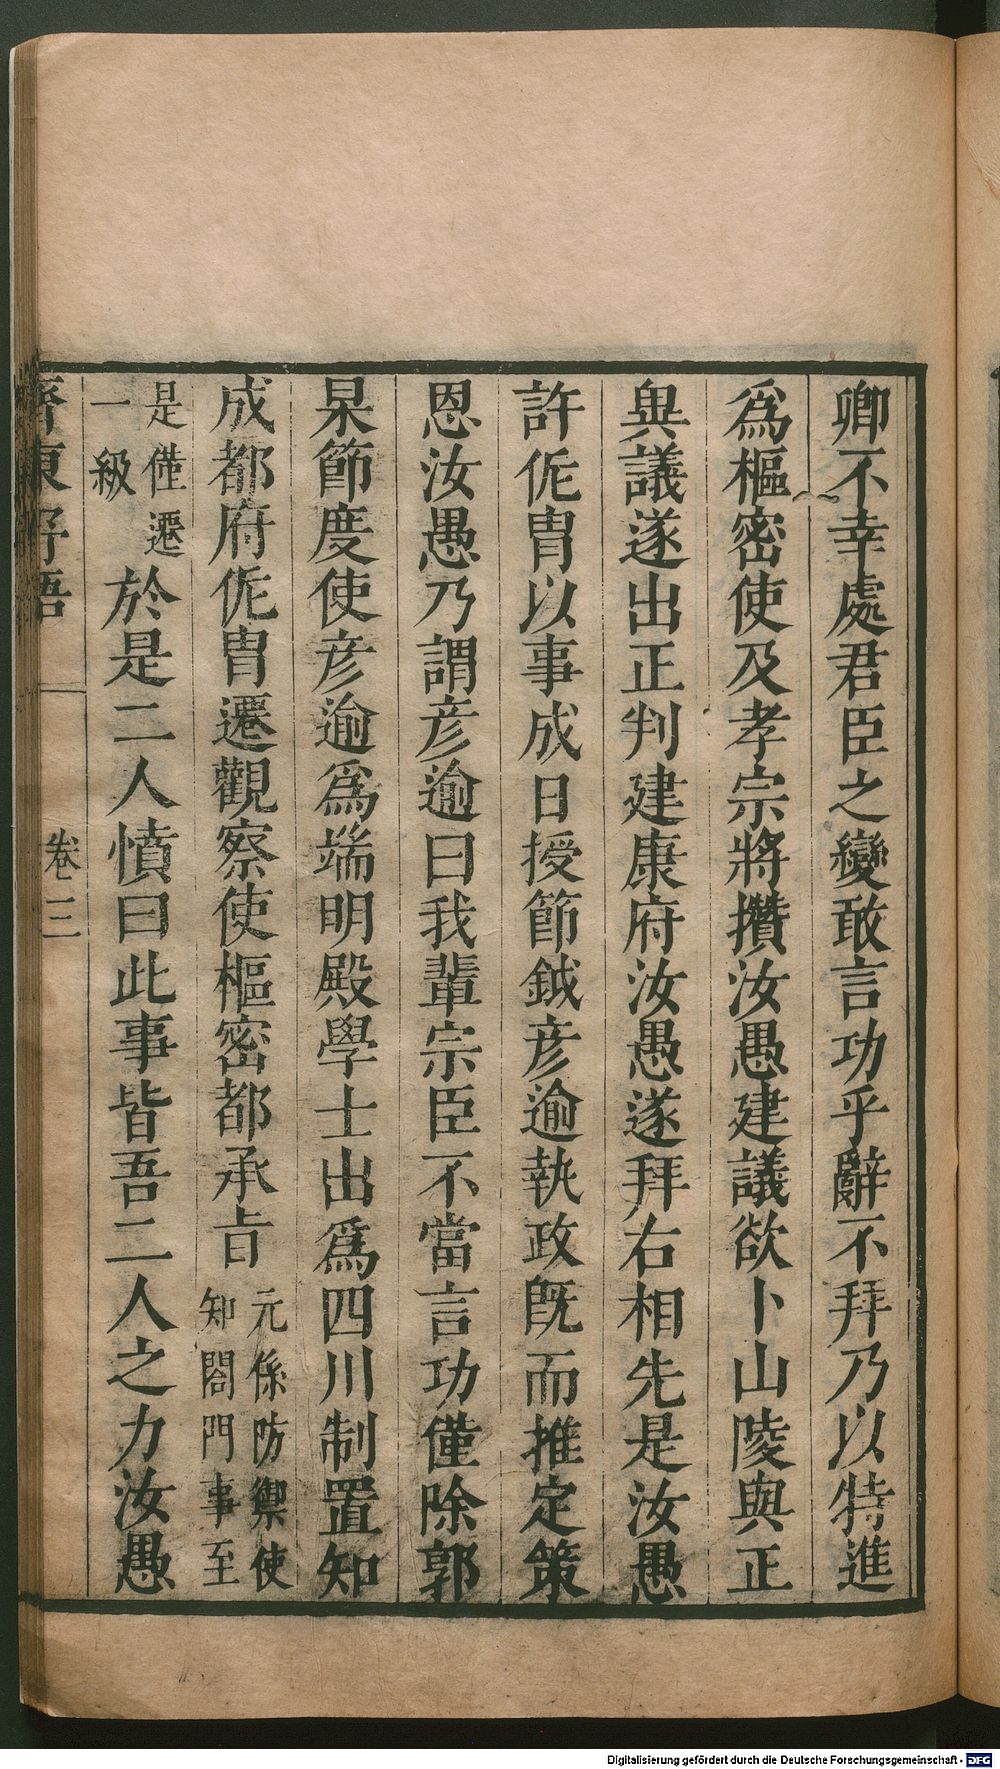 卿不幸處君臣之變敢言功乎辭不拜乃以特進
爲樞密使及孝宗將攢汝愚建議欲卜山陵與正
異議遂出正判建康府汝愚遂拜右相先是汝愚
許侂胄以事成日授節鉞彦逾執政既而推定策
恩汝愚乃謂彦逾曰我輩宗臣不當言功僅除郭
杲節度使彦逾爲端明殿學士出爲四川制置知
成都府侂胄遷觀察使樞密都承旨 元係防禦使
知閤門事至
是僅遷
一級 於是二人憤曰此事皆吾二人之力汝愚
齊東野語 卷三
Digitalisierung gefördert durch die Deutsche Forschungsgemeinschaft - DFG